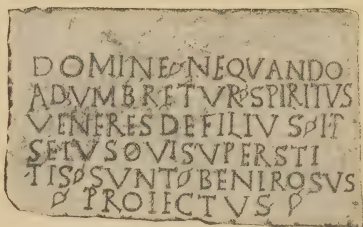 DOMINE NEQVANDO
ADVMBRETVR SPIRITVS
VENERES DE FILIVS IT
SETVS QVI SVPERSTI
TIS SVNT BENIROSVS
PROIECTVS